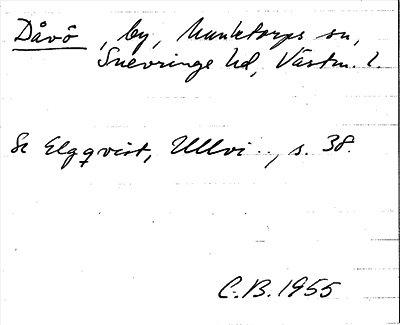 Dåvö, by, Munktorps sn,
Snevringe hd, Västm. l.
Se Elgqvist, Ullvi.., s. 38.
C.B. 1955